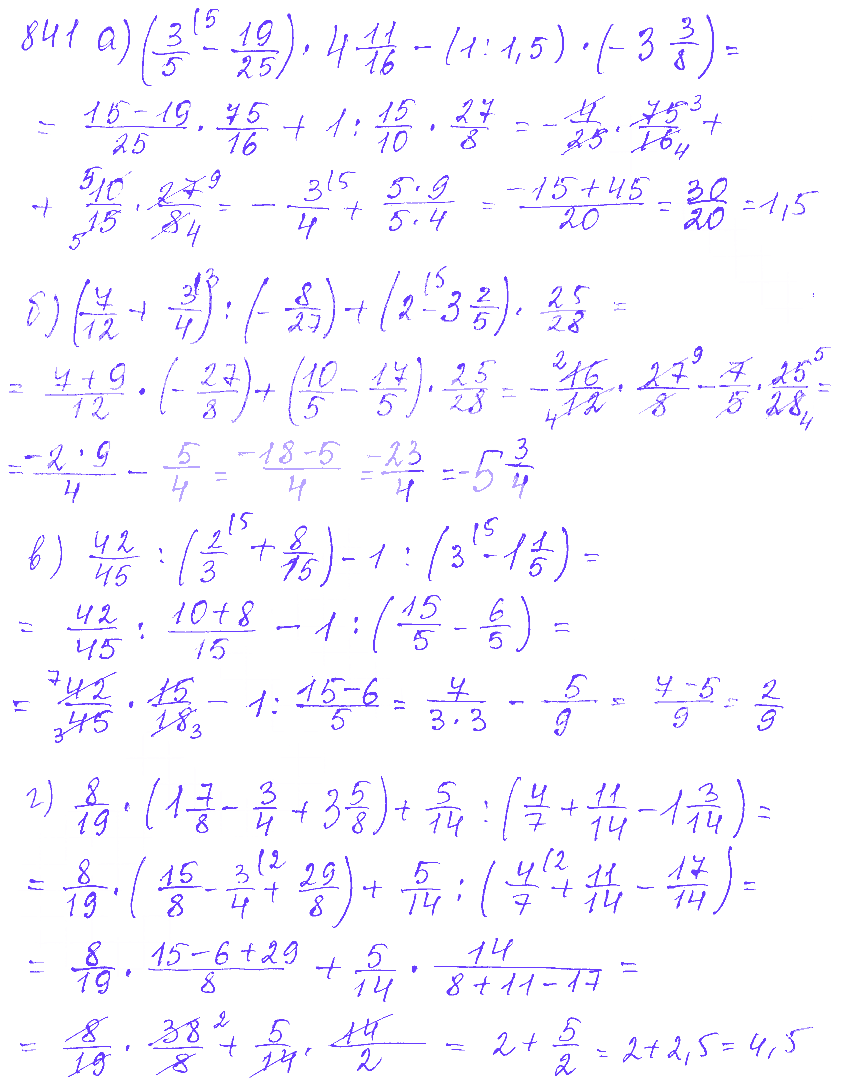 841 а) (3/5 (5 - 19/25) · 4 11/16 - (1 : 1,5) · (-3 3/8) =
= 15-19/25 · 75/16 + 1 : 15/10 · 27/8 = - 4/25 · 75/16 3 4 +
+ 5 10/15 5 · 27/8 9 4 = - 3/4 (5 + 5·9/5·4 = -15+45/20 = 30/20 = 1,5
б) (7/12 + 3/4 (3) : (- 8/27) + (2 (5 - 3 2/5) · 25/28 =
= 7+9/12 · (- 27/8) + (10/5 - 17/5) · 25/28 = - 2 16/12 4 · 27/8 9 - 7/5 · 25/28 5 4 =
= -2·9/4 - 5/4 = -18-5/4 = -23/4 = -5 3/4
в) 42/45 : (2/3 (5 + 8/15) - 1 : (3 (5 - 1 1/5) =
= 42/45 : 10+8/15 - 1 : (15/5 - 6/5) =
= 7 42/45 3 · 15/18 3 - 1 : 15-6/5 = 7/3·3 - 5/9 = 7-5/9 = 2/9
г) 8/19 · (1 7/8 - 3/4 + 3 5/8) + 5/14 : (4/7 + 11/14 - 1 3/14) =
= 8/19 · (15/8 - 3/4 (2 + 29/8) + 5/14 : (4/7 (2 + 11/14 - 17/14) =
= 8/19 · 15-6+29/8 + 5/14 · 14/8+11-17 =
= 8/19 · 38/8 2 + 5/14 · 14/2 = 2 + 5/2 = 2+2,5 = 4,5